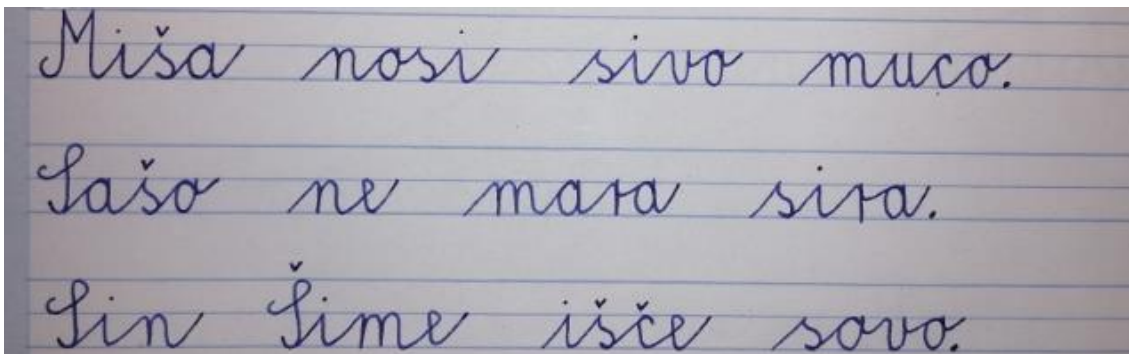 Miša nosi sivo muco.
Sašo ne mara sira.
Sin Šime išče sovo.